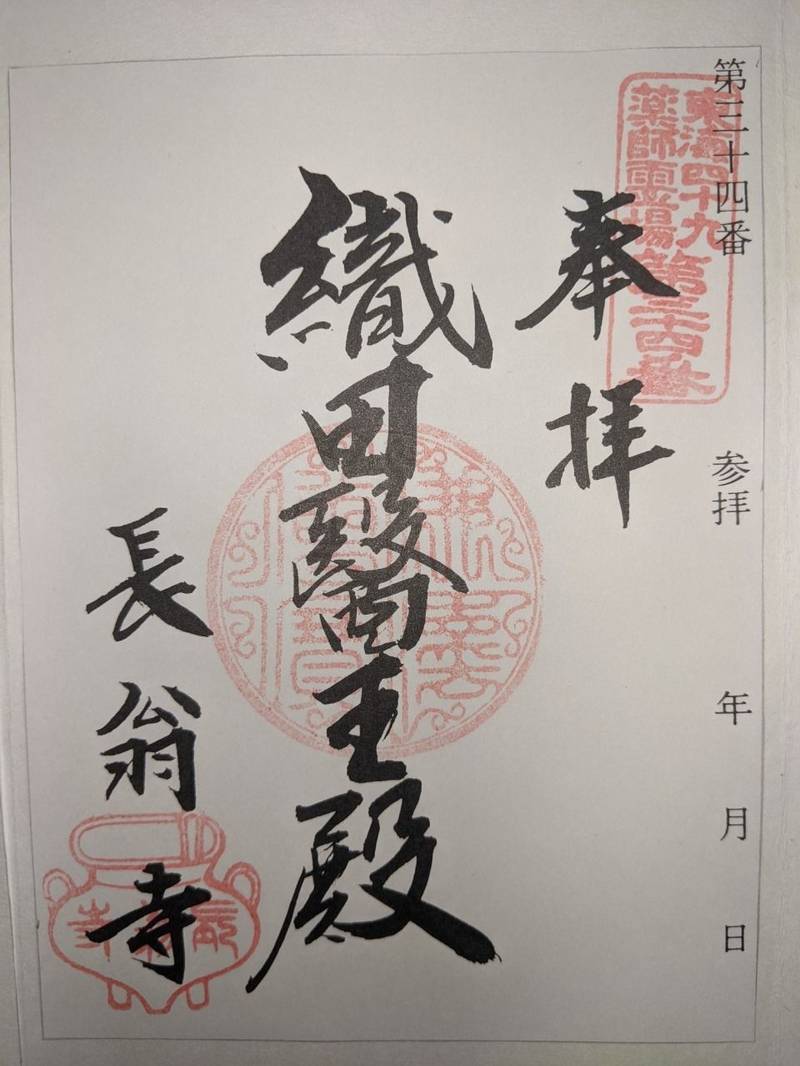 第三十四番 参拝 年 月 日
東海四十九
薬師霊場第三十四番
奉拝
織田醫王殿
長翁寺